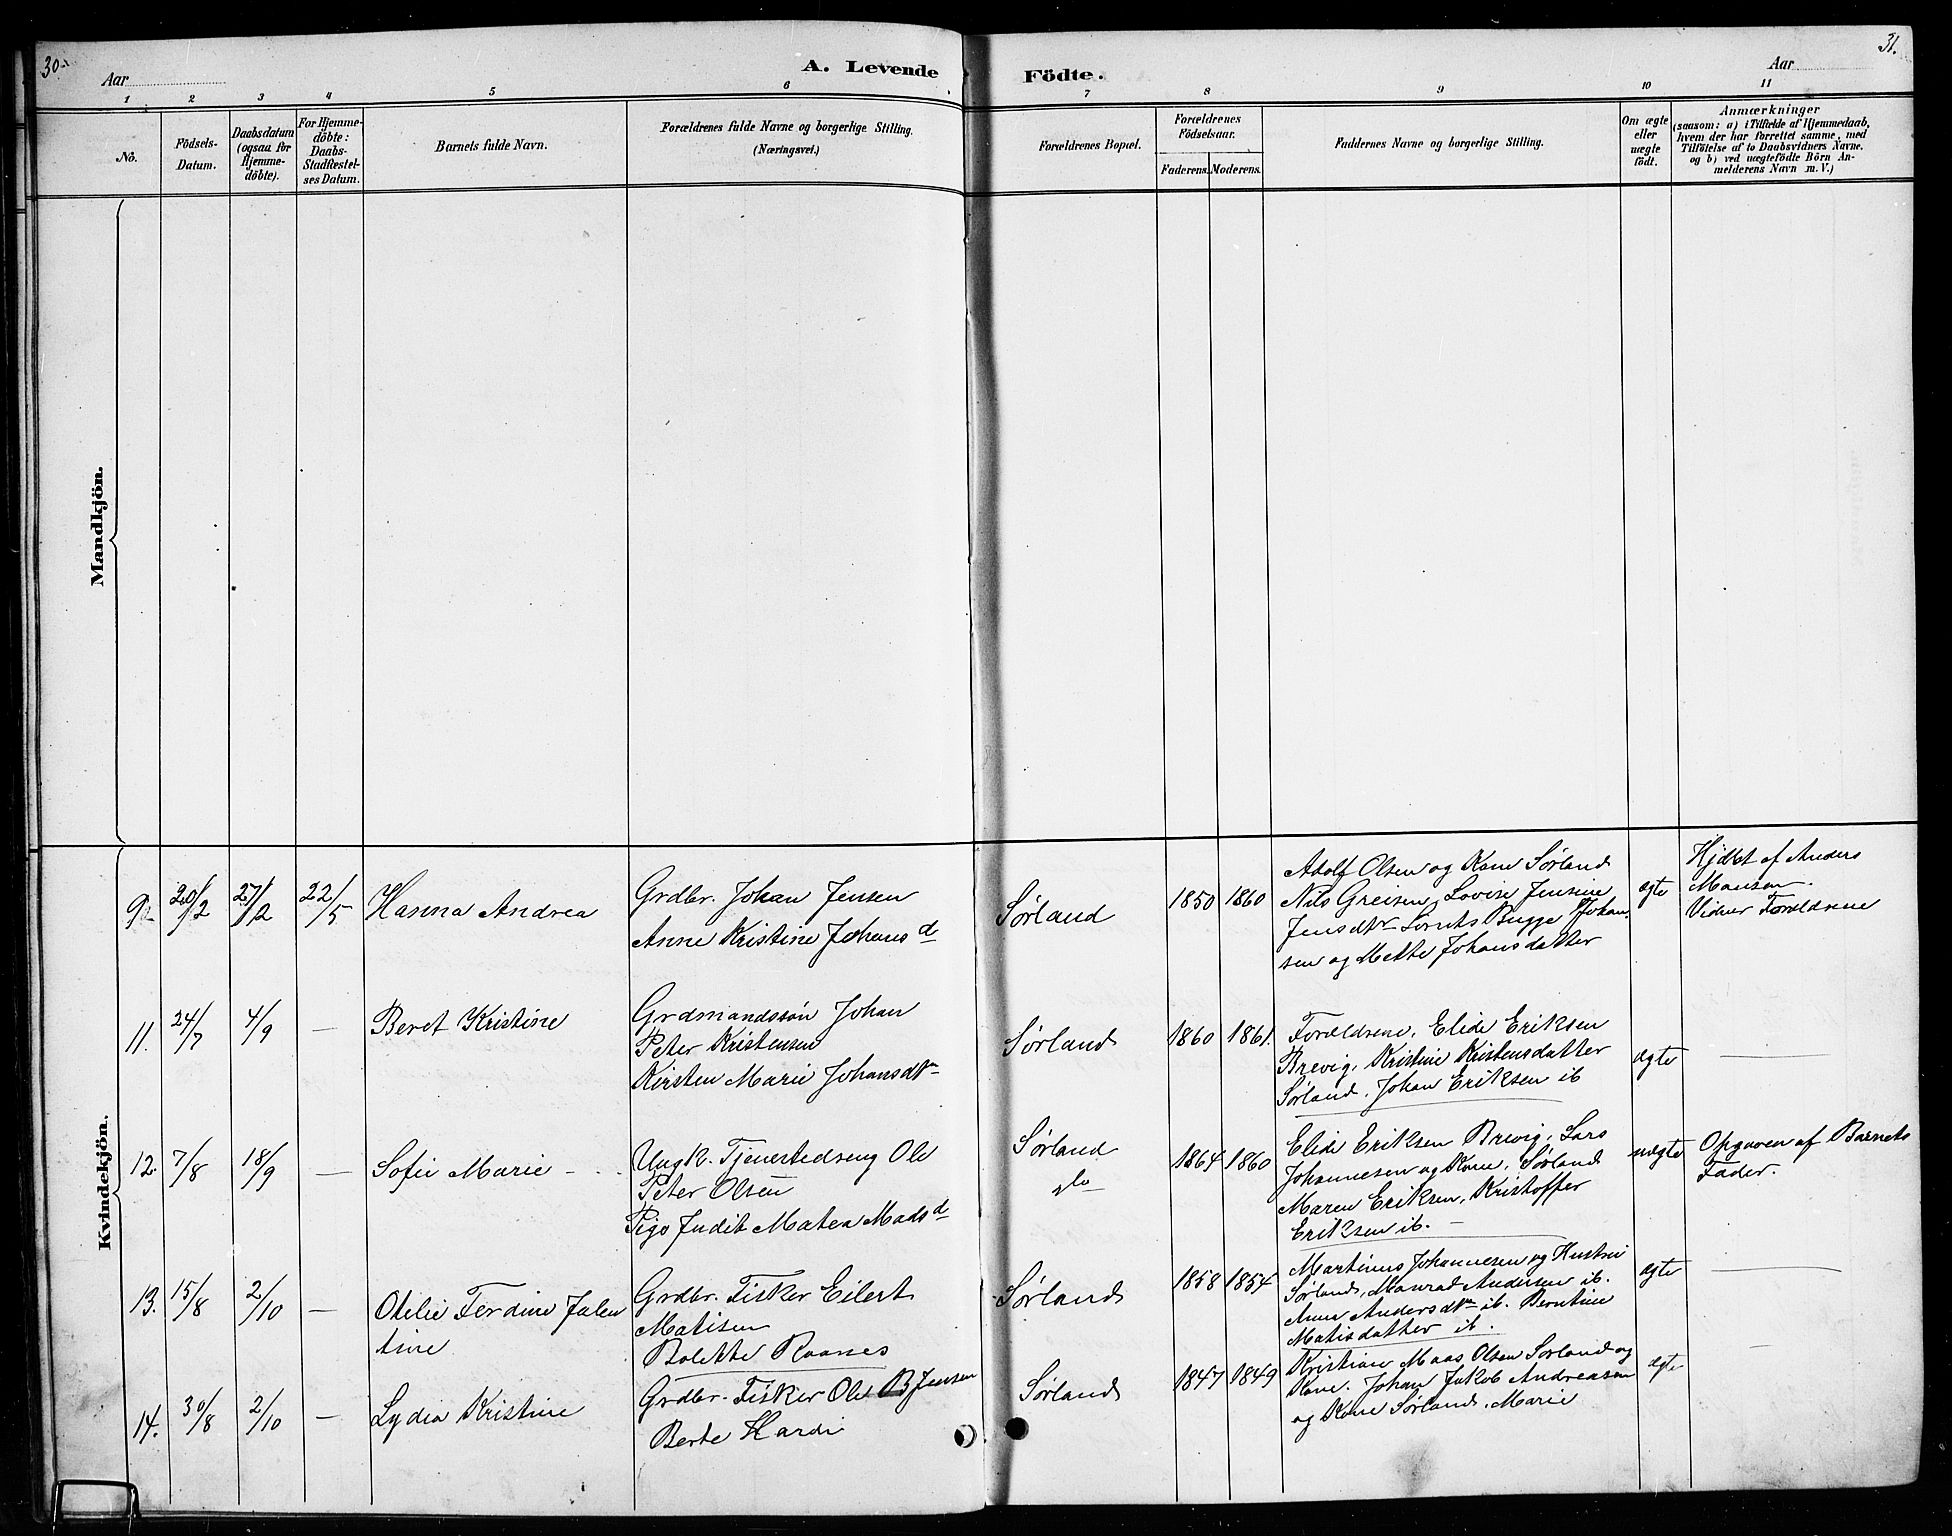 30.
31.
Aar
A. Levende Födte.
Aar
1 2 3 4 5 6 7 8 9 10 11
No.
Födsels-Datum.
Daabsdatum (ogsaa for Hjemme-döbte).
For Hjemme-döbte: Daabs-Stadfæstel-ses Datum.
Barnets fulde Navn.
Forældrenes fulde Navne og borgerlige Stilling.
(Næringsvei.)
Forældrenes Bopæl.
Forældrenes Födselsaar.
Faderens. Moderens.
Faddernes Navne og borgerlige Stilling.
Om ægte eller uægte födt.
Anmærkninger
(saasom: a) i Tilfælde af Hjemmedaab,
hvem der har forrettet samme, med
Tilföielse af to Daabsvidners Navne.
og b) ved uægtefödte Börn An-
melderens Navn m. V.)
Mandkjön.
Kvindekjön.
9. 20/2 27/2 22/5 Hanna Andrea
Grdbr. Johan Jensen
Anne Kristine Johansd
Sørland 1850 1860
Adolf Olsen og Kone Sørland
Nils Greisen, Lovise Jensine
Jensdtr Bugge Johan
sen og Mette Johansdatter
ægte
Hjdbt af Anders
Monsen.
Vidner Forældrene
11. 24/7 4/9 — Beret Kristine
Grdmandssøn Johan
Peter Kristensen
Kirsten Marie Johansdtr
Sørland 1860 1861.
Forældrene, Elide Eriksen
Brevig, Kristine Kristensdatter
Sørland, Johan Eriksen ib
ægte —
12. 7/8 18/9 — Sofie Marie
Ungk. Ole
Peter Olsen
Pige Judit Matea Madsd
Sørland
do
1864 1860
Elide Eriksen Brevig, Lars
Johannesen og Kone, Sørland
Maren Eriksen, Kristoffer
Eriksen ib. —
uægte
Opgaven af Barnets
Fader.
13. 15/8 2/10 — Otelie Ferdine Julen
tine
Grdbr. Fisker Eilert
Matisen
Bolette Roanes
Sørland 1858 1854
Martinus Johannesen og Hustru
Sørland, Monrad Andersen ib.
Anne Andersdtr ib. Berntine
Matisdatter ib.
ægte —
14. 30/8 2/10 — Lydia Kristine
Grdbr. Fisker Ole B Jensen
Berte Hardi
Sørland 1847 1849
Kristian Maas Olsen Sørland og
Kone. Johan Jakob Andreasen
og Kone Sørland, Marie
ægte —